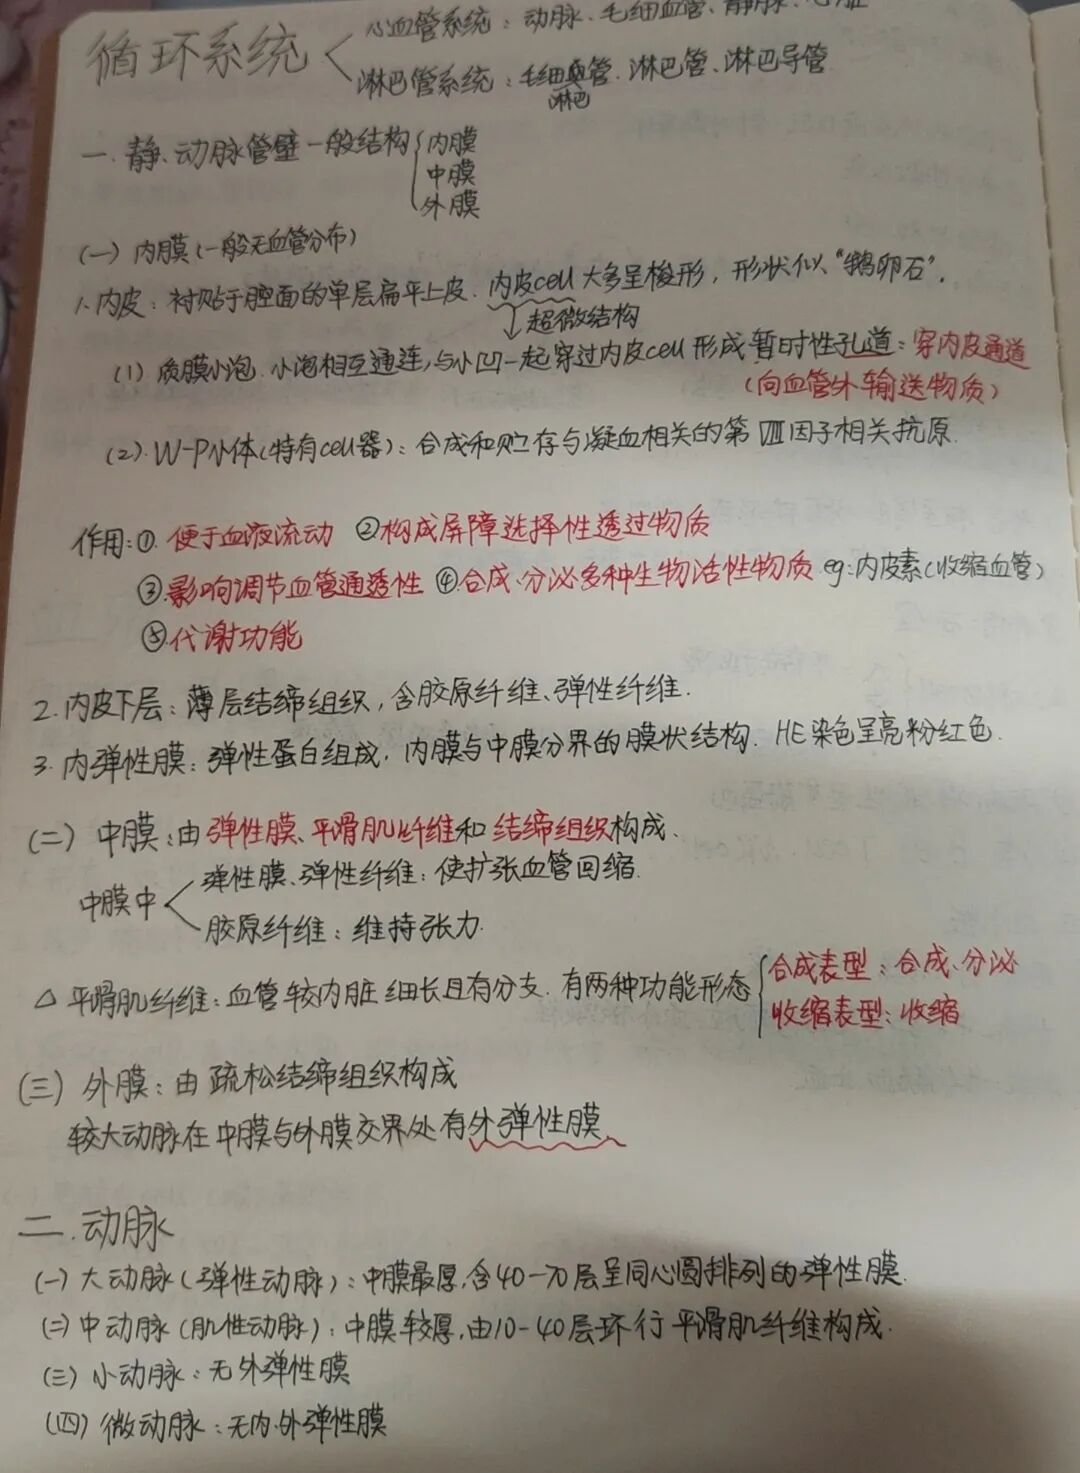 循环系统
心血管系统：动脉、毛细血管、静脉、心脏
淋巴管系统：毛细管、淋巴管、淋巴导管
淋巴
一.静、动脉管壁一般结构 内膜
中膜
外膜
(一) 内膜(一般无血管分布)
1.内皮：衬贴于腔面的单层扁平上皮.内皮cell大多呈梭形，形状似"鹅卵石".
超微结构
(1) 质膜小泡.小泡相互通连,与小凹一起穿过内皮cell形成暂时性孔道：穿内皮通道
(向血管外输送物质)
(2).W-P小体(特有cell器)：合成和贮存与凝血相关的第Ⅷ因子相关抗原.
作用:①.便于血液流动 ②构成屏障选择性透过物质
③.影响调节血管通透性 ④合成、分泌多种生物活性物质.eg:内皮素(收缩血管)
⑤代谢功能
2.内皮下层：薄层结缔组织，含胶原纤维、弹性纤维.
3.内弹性膜：弹性蛋白组成，内膜与中膜分界的膜状结构.HE染色呈亮粉红色.
(二) 中膜:由弹性膜、平滑肌纤维和结缔组织构成.
中膜中 弹性膜、弹性纤维：使扩张血管回缩.
胶原纤维：维持张力.
△平滑肌纤维：血管较内脏细长且有分支.有两种功能形态 合成表型：合成、分泌
收缩表型：收缩
(三) 外膜：由疏松结缔组织构成
较大动脉在中膜与外膜交界处有外弹性膜.
二.动脉
(一) 大动脉(弹性动脉)：中膜最厚,含40-70层呈同心圆排列的弹性膜.
(二) 中动脉(肌性动脉)：中膜较厚,由10-40层环行平滑肌纤维构成.
(三) 小动脉：无外弹性膜
(四) 微动脉：无内.外弹性膜